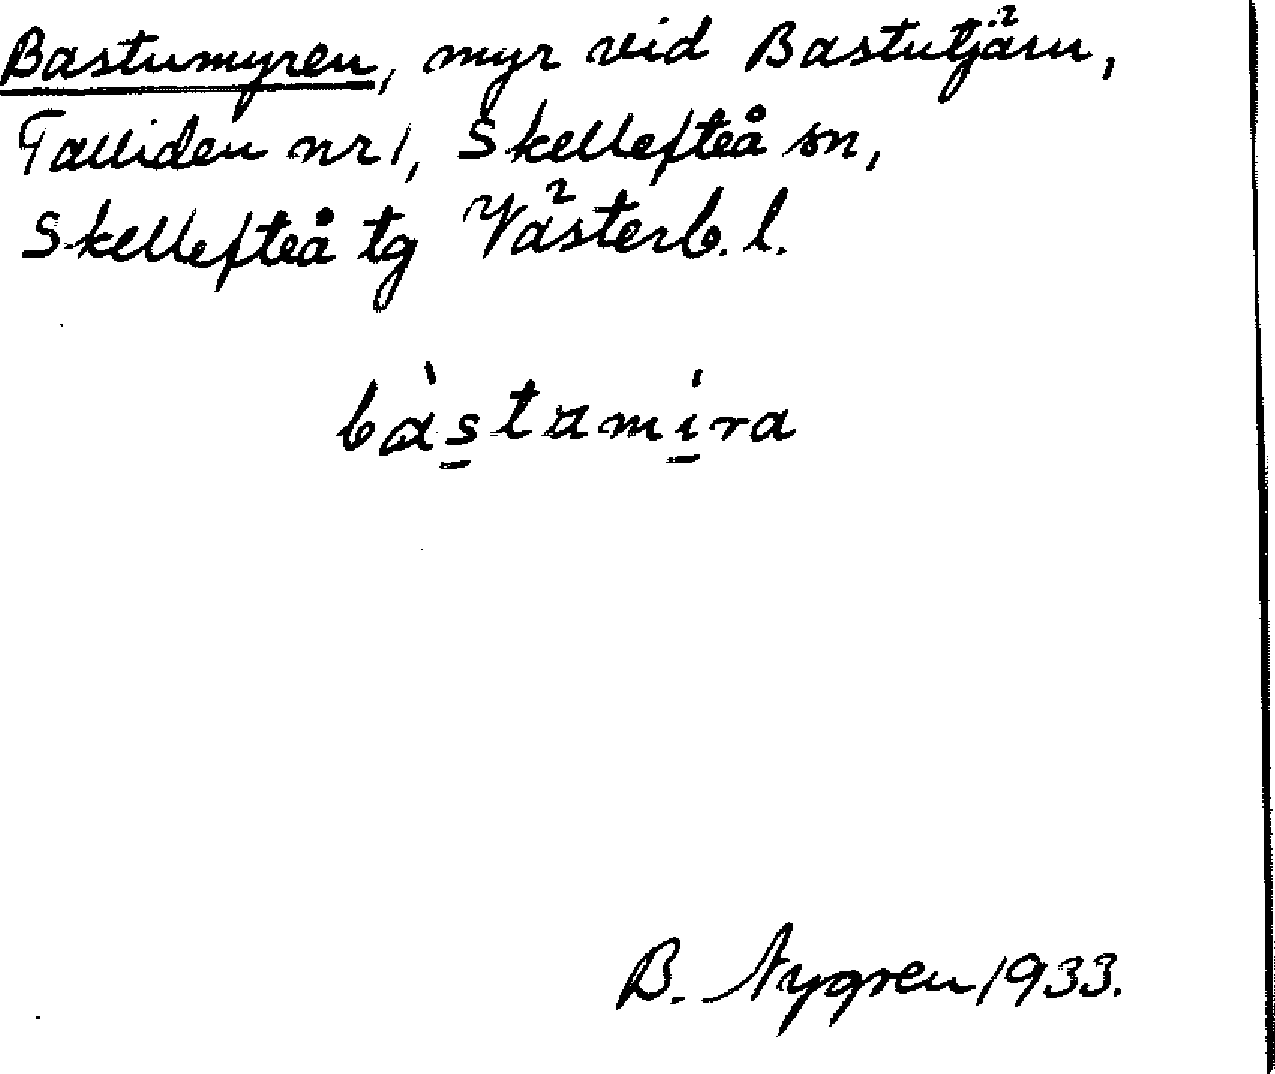 Bastumyren, myr vid Bastutjärn,
Talliden nr 1, Skellefteå sn,
Skellefteå tg Västerb. l.
bàstamíra
B. Nygren 1933.